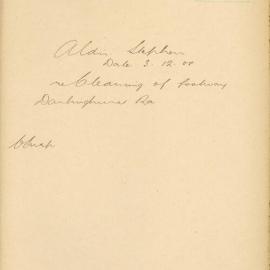 Aldis Stephen
Date 3.12.00
re Cleaning of footway
Darlinghurst Rd